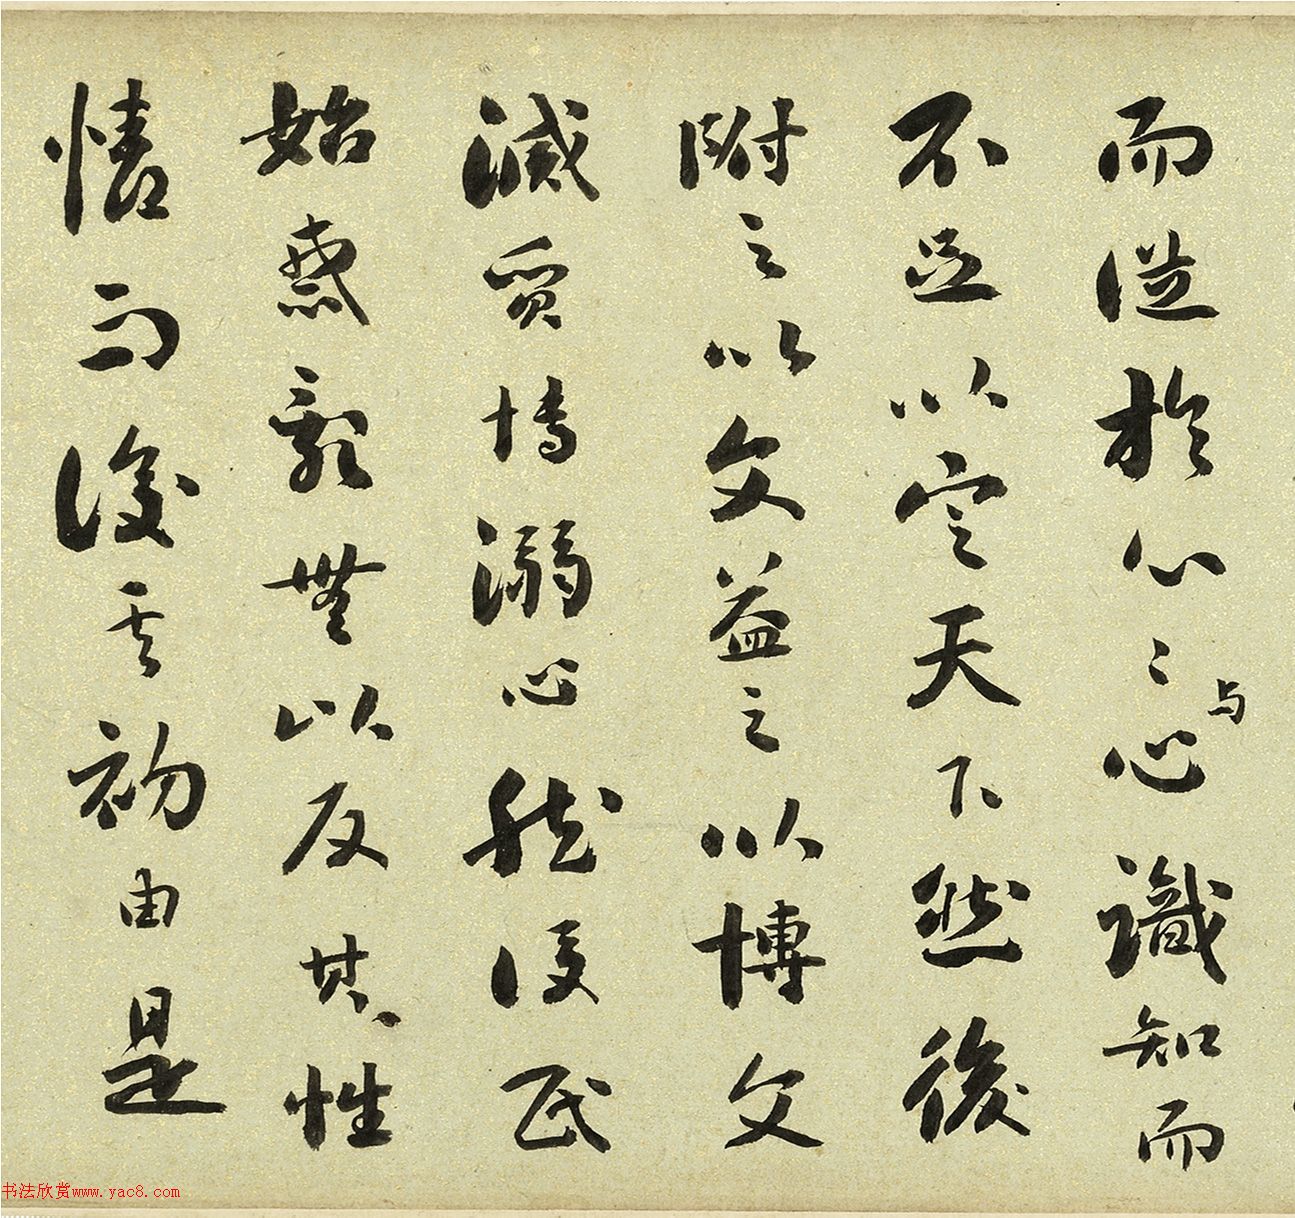 而從於心心与心識知而
不足以定天下然後
附之以文益之以博文
滅質博溺心然後民
始惑亂無以反其性
情而復其初由是
书法欣赏www.yac8.com